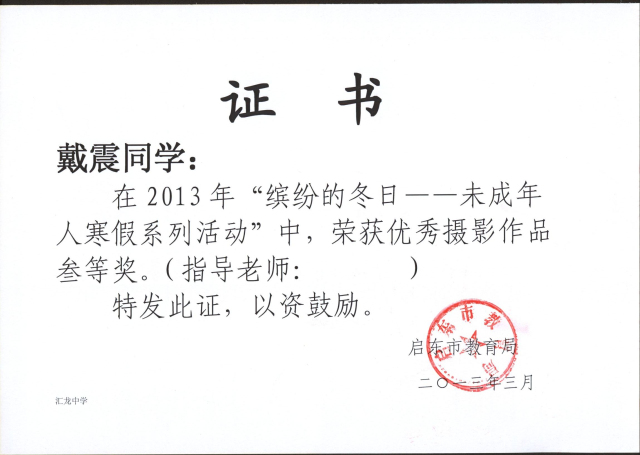 证 书
戴震同学：
在2013年“缤纷的冬日——未成年
人寒假系列活动”中，荣获优秀摄影作品
叁等奖。（指导老师：　　　　）
特发此证，以资鼓励。
启东市教育局
启东市教育局
二〇一三年三月
汇龙中学